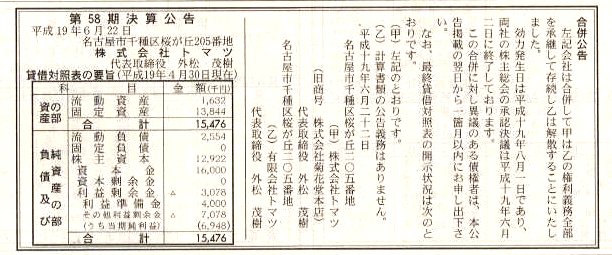 合併公告
左記会社は合併して甲は乙の権利義務全部
を承継して存続し乙は解散することにいたし
ました。
効力発生日は平成十九年八月一日であり、
両社の株主総会の承認決議は平成十九年六月
二日に終了しております。
この合併に対し異議のある債権者は、本公
告掲載の翌日から一箇月以内にお申し出下さ
い。
なお、最終貸借対照表の開示状況は次のと
おりです。
(甲)左記のとおりです。
(乙)計算書類の公告義務はありません。
平成十九年六月二十二日
名古屋市千種区桜が丘二〇五番地
(甲)株式会社トマツ
(旧商号 株式会社菊花堂本店)
代表取締役 外松 茂樹
名古屋市千種区桜が丘二〇五番地
(乙)有限会社トマツ
代表取締役 外松 茂樹
第58期決算公告
平成19年6月22日
名古屋市千種区桜が丘205番地
株式会社トマツ
代表取締役 外松 茂樹
貸借対照表の要旨(平成19年4月30日現在)
科 目 金 額(千円)
資産の部
流動資産 1,632
固定資産 13,844
合計 15,476
負債及び純資産の部
流動負債 2,554
固定負債 0
株主資本 12,922
資本金 16,000
資本剰余金 0
利益剰余金 △ 3,078
利益準備金 4,000
その他利益剰余金 △ 7,078
(うち当期純利益) (6,948)
合計 15,476